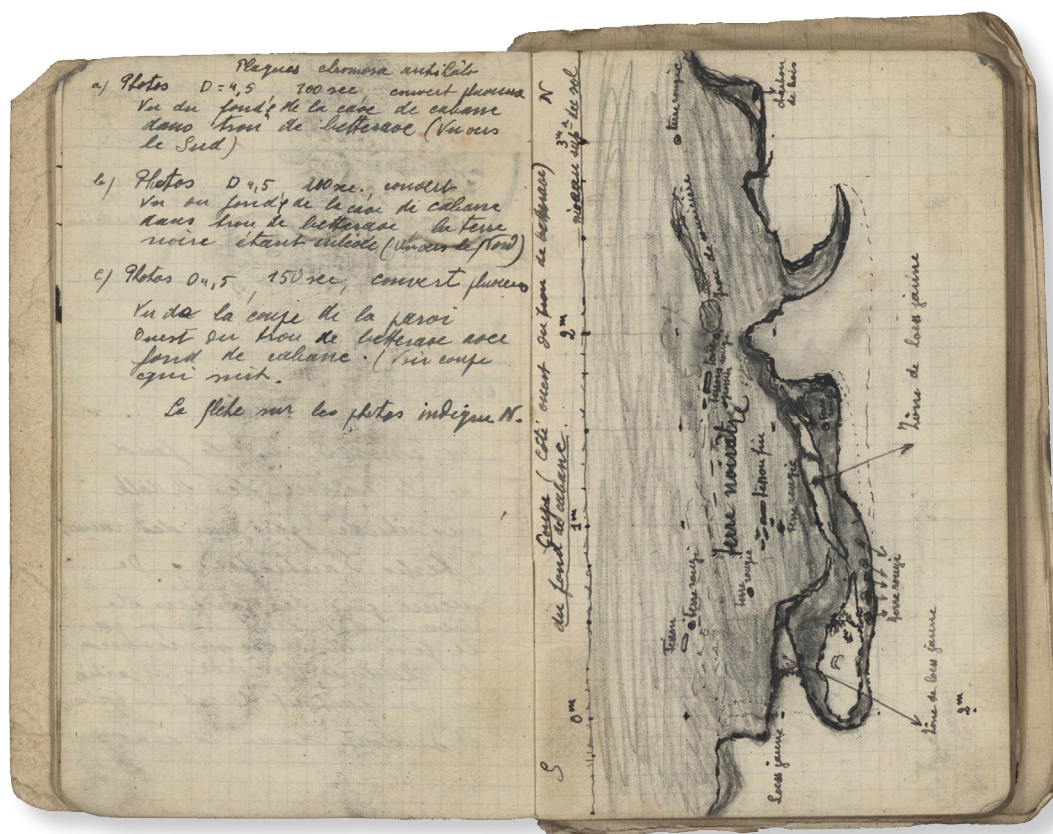 Plaques chromosa antihalo
a) Photos D=4,5 200 sec couvert pluvieux
Vu du fond de la cave de cabane
dans trou de betterave (Vu vers
le Sud)
b) Photos D 4,5 200 sec. couvert
Vu du fond de la cave de cabane
dans trou de betterave la terre
noire étant enlevée (Vu vers le Nord)
c) Photos D 4,5 150 sec, couvert pluvieux
Vu de la coupe de la paroi
Ouest du trou de betterave avec
fond de cabane. (Voir coupe
qui suit.
La flèche sur les photos indique N.
Coupe (Côté ouest du trou de betterave)
du fond de cabane.
S
N
0m
1m
2m
3m
niveau sup. du sol
terre rougie
Charbon
de bois
Terre noirâtre
tesson fin
terre rougie
terre rougie
terre rougie
Zône de loess jaune
Terre rougi
Zône de loess jaune
Loess jaune
2m